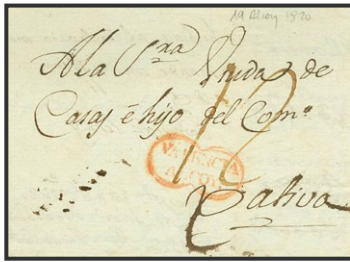 19 Alcoy 1820
A la S.ra Viuda de
Casas é hijo del Com.o
12
VALENCIA
ALCOY
Xativa